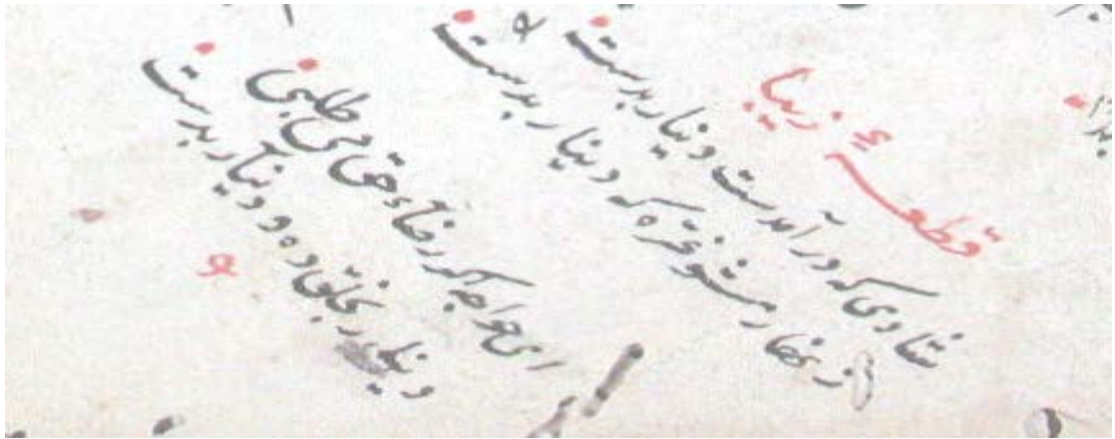 قطعۀ زیبا
شادی که در آمدست دنیا بدست
زنهار مشو غره که دنیا بدست
ای خواجه که رضاء حق می طلبی
دنیا بخلق ده و دنیا بدست